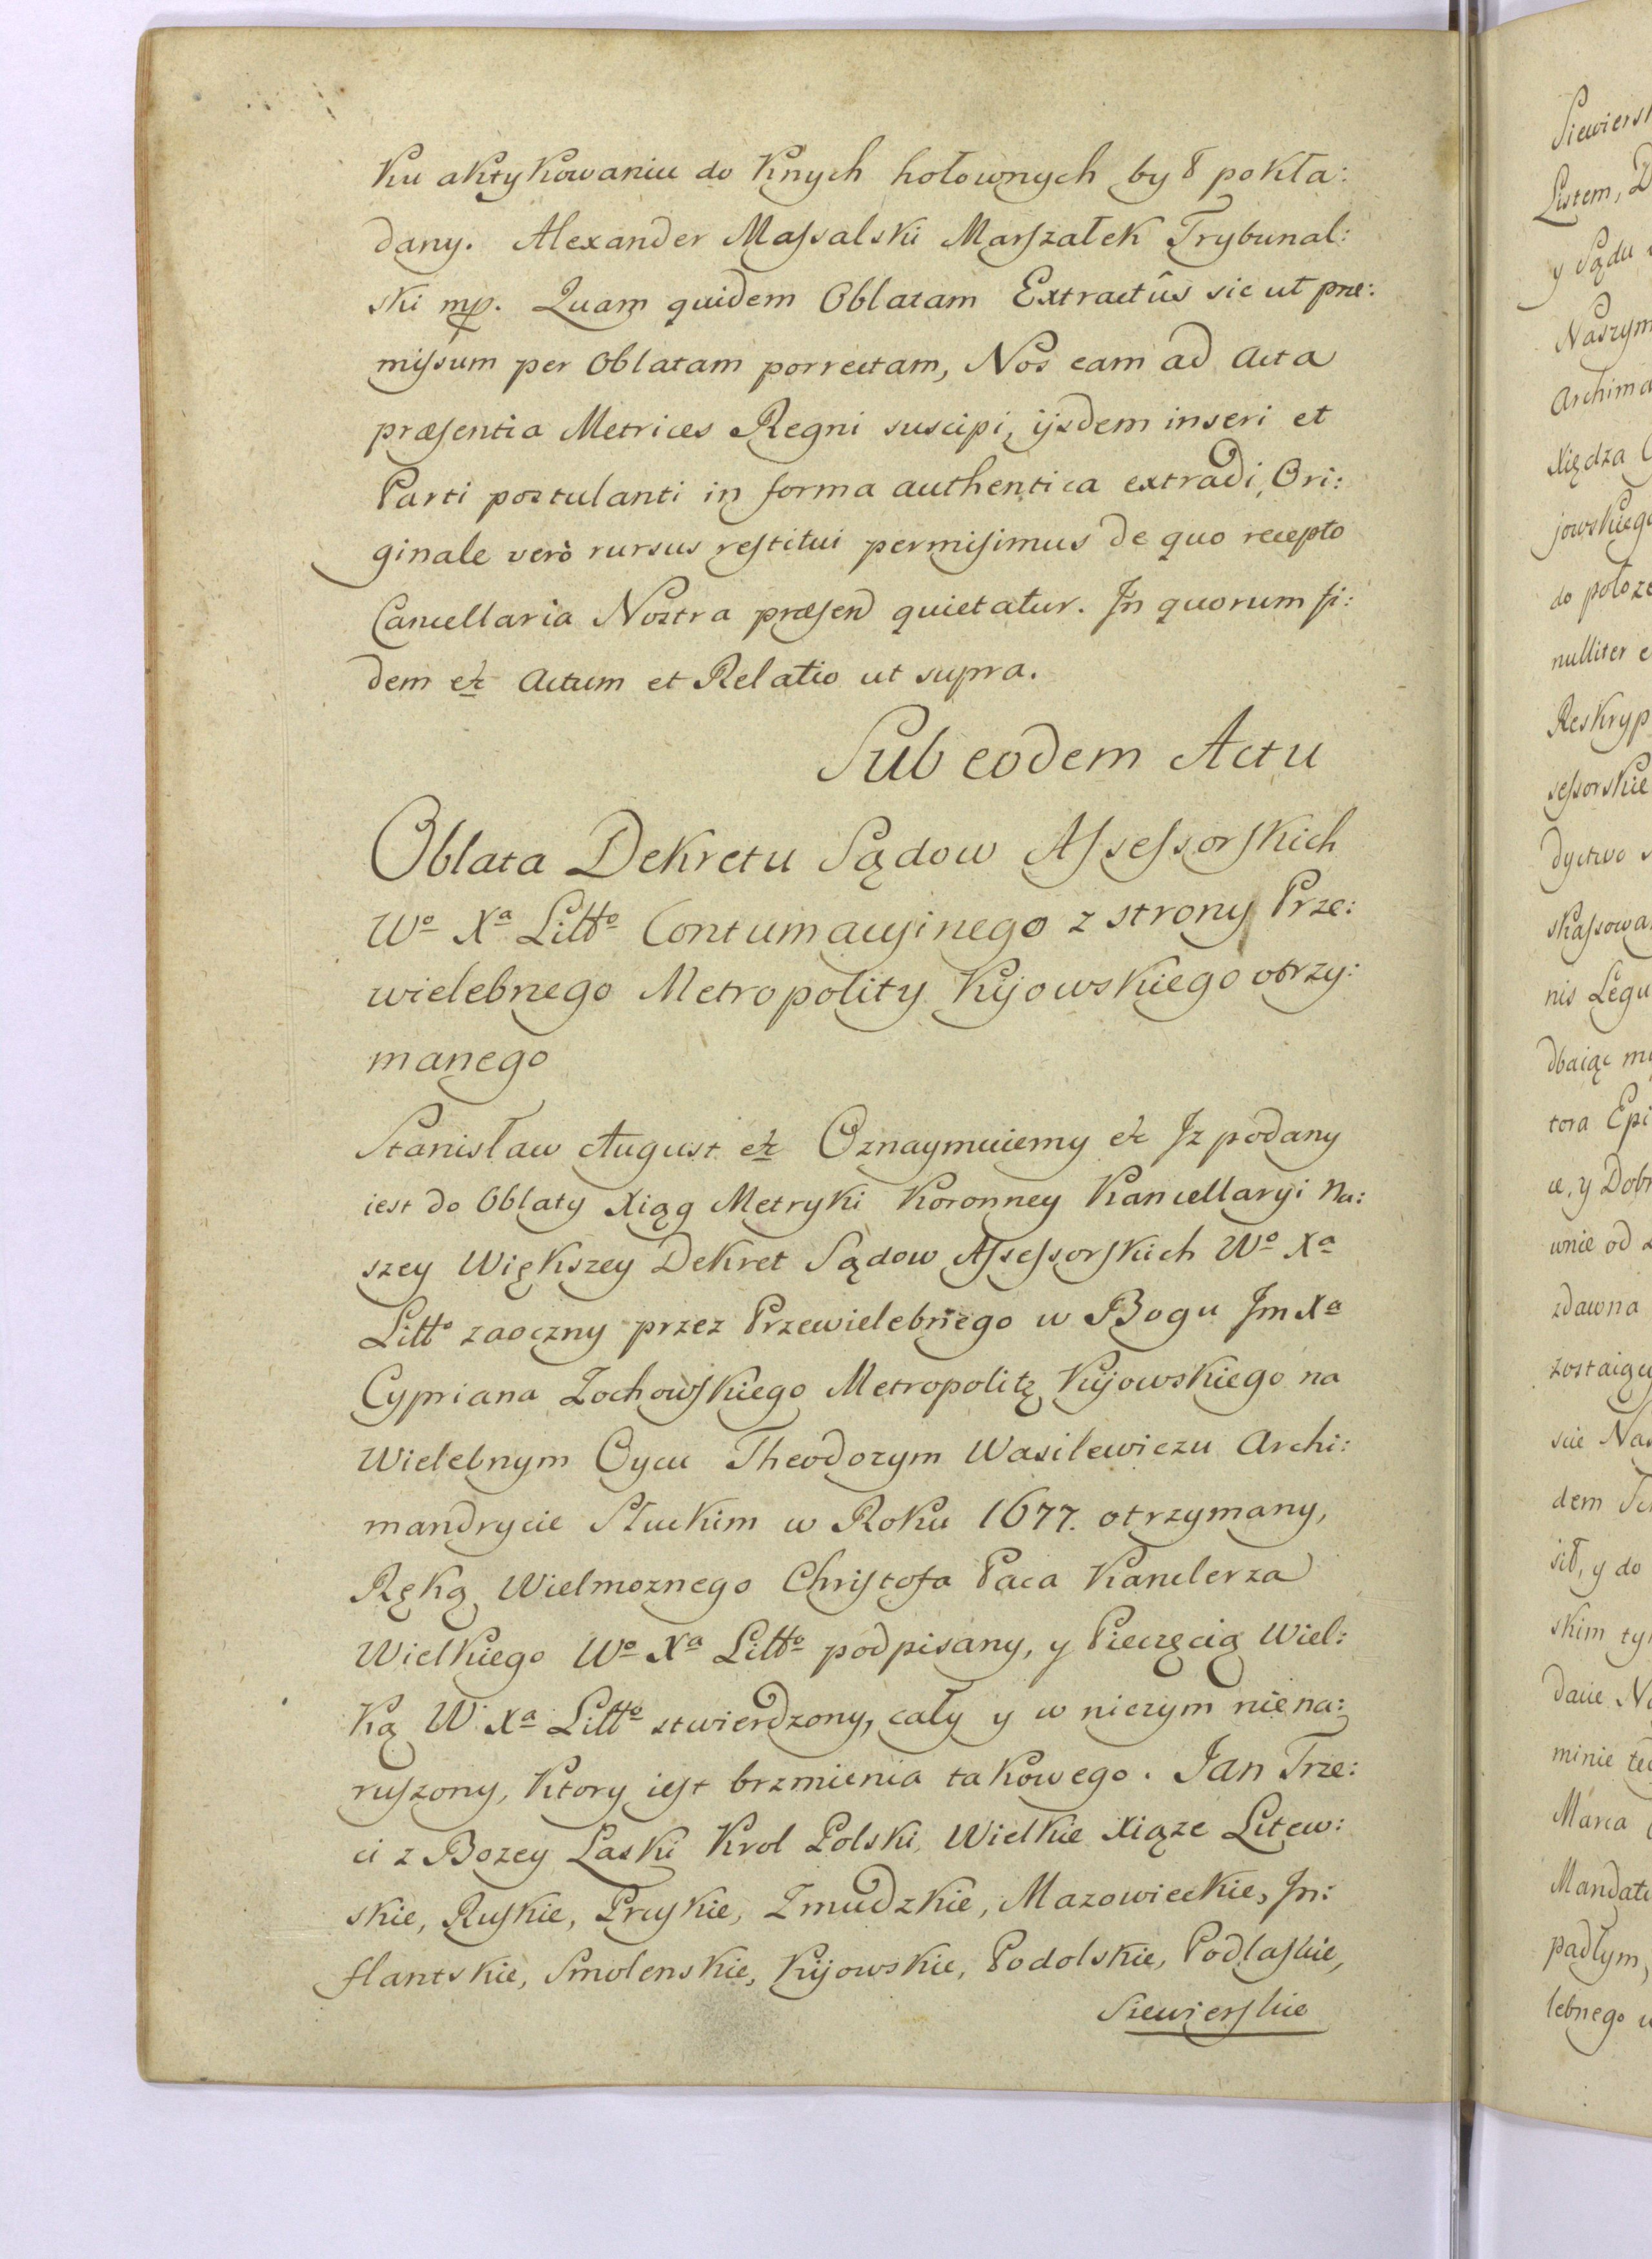 Ku aktykowaniu do Knych hołownych był pokła:
dany. Alexander Massalski Marszałek Trybunal:
ski mp. Quam quidem Oblatam Extractûs sic ut præ:
missum per Oblatam porrectam, Nos eam ad Acta
præsentia Metrices Regni suscipi, ijsdem inseri et
Parti postulanti in forma authentica extradi, Ori:
ginale verò rursus restitui permisimus de quo recepto
Cancellaria Nostra præsen quietatur. In quorum fi:
dem etc Actum et Relatio ut supra.
Sub eodem Actu
Oblata Dekretu Sądow Assessorskich
Wo Xa Litto Contumacyinego z strony Prze:
wielebnego Metropolity Kijowskiego otrzy:
manego
Stanisław August etc Oznaymuiemy etc Iz podany
iest do Oblaty Xiąg Metryki Koronney Kancellaryi Na:
szey Większey Dekret Sądow Assessorskich Wo Xa
Litto zaoczny przez Przewielebnego w Bogu Jm Xa
Cypriana Zochowskiego Metropolitę Kijowskiego na
Wielebnym Oycu Theodozym Wasilewiczu Archi:
mandrycie Słuckim w Roku 1677. otrzymany,
Ręką Wielmoznego Christofa Paca Kanclerza
Wielkiego Wo Xa Litto podpisany, y Pieczęcią Wiel:
ką W Xa Litto stwierdzony, cały y w niczym niena:
ruszony, Ktory iest brzmienia takowego. Jan Trze:
ci z Bozey Łaski Krol Polski, Wielkie Xiąze Litew:
skie, Ruskie, Pruskie, Zmudzkie, Mazowieckie, In:
flantskie, Smolenskie, Kijowskie, Podolskie, Podlaskie,
Siewierskie
Listem,
y Sądu
Naszym
Archima
Xiędza
jowskiego
nulliter
Reskryp
sessorskie
dyctwo
skassowa
nis Legu
dbaiąc
tora Epi
y Dobr
wnie od
zdawna
zostaiący
scie Nas
dem
y do
skim
dacie
minie
Marca
Mandatu
padłym,
lebnego